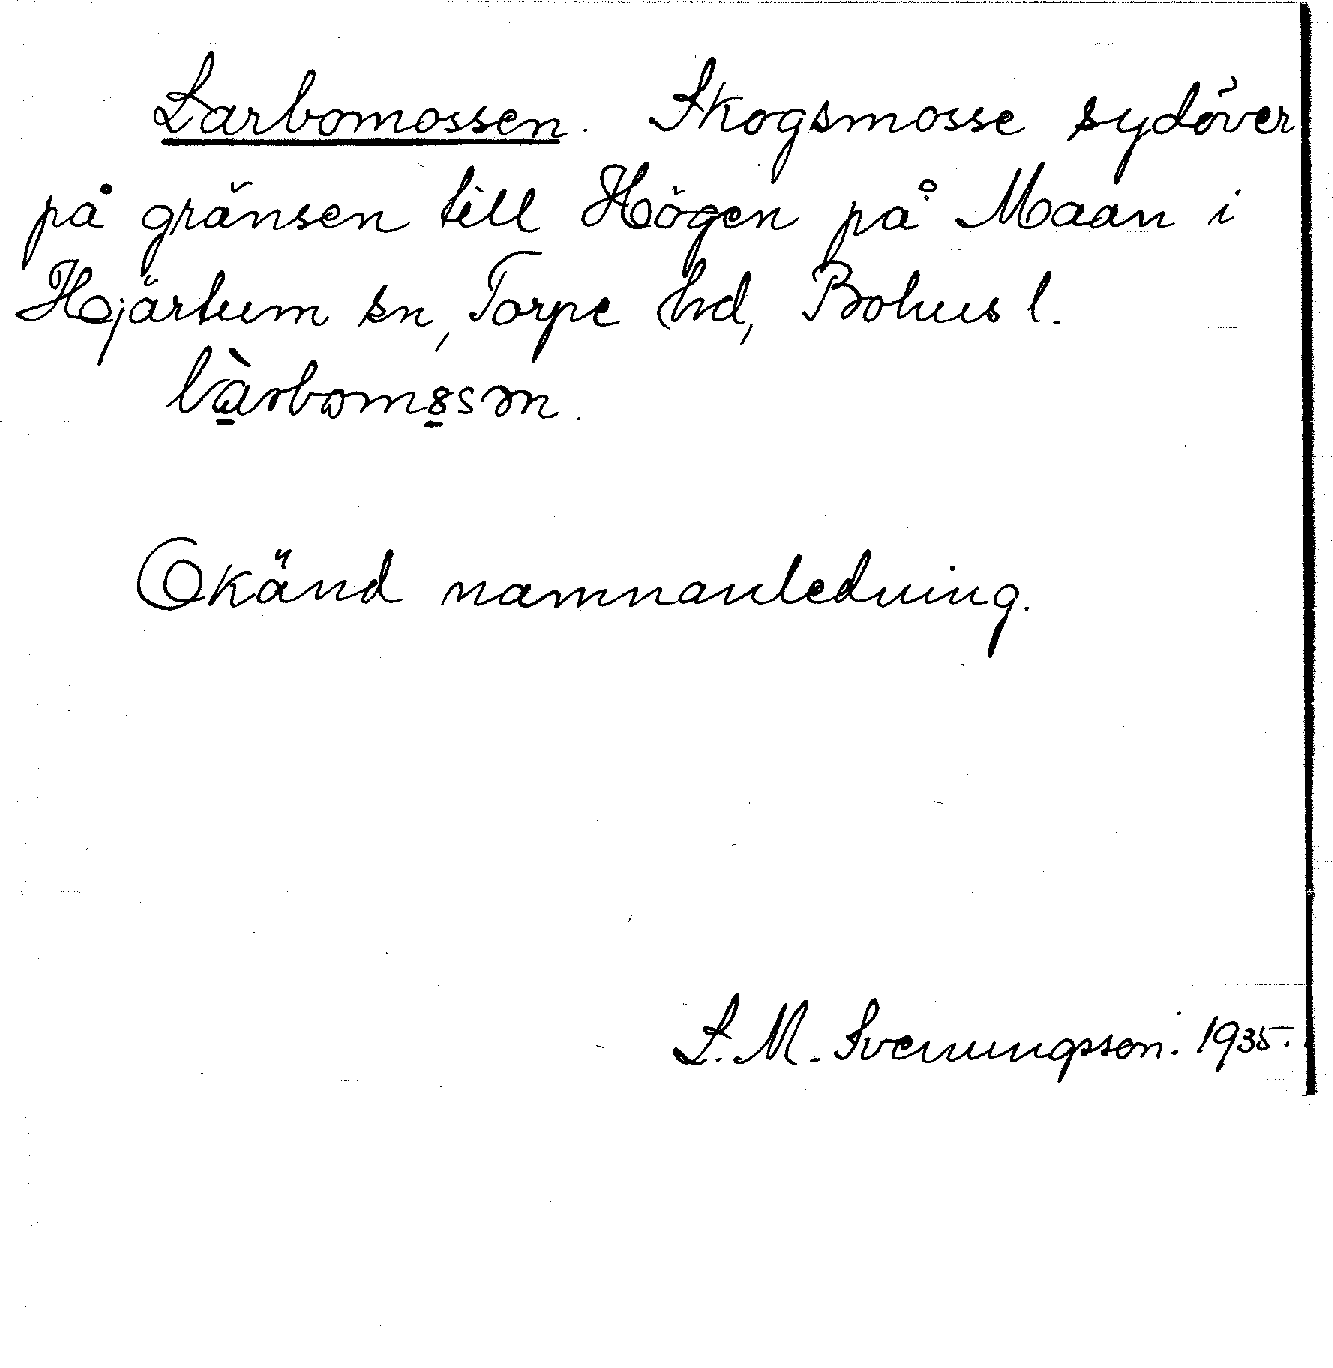 Larbomossen. Skogsmosse sydöver
på gränsen till Högen på Maan i
Hjärtum sn, Torpe hd, Bohus l.
Okänd namnanledning.
L. M. Svenungsson. 1935.